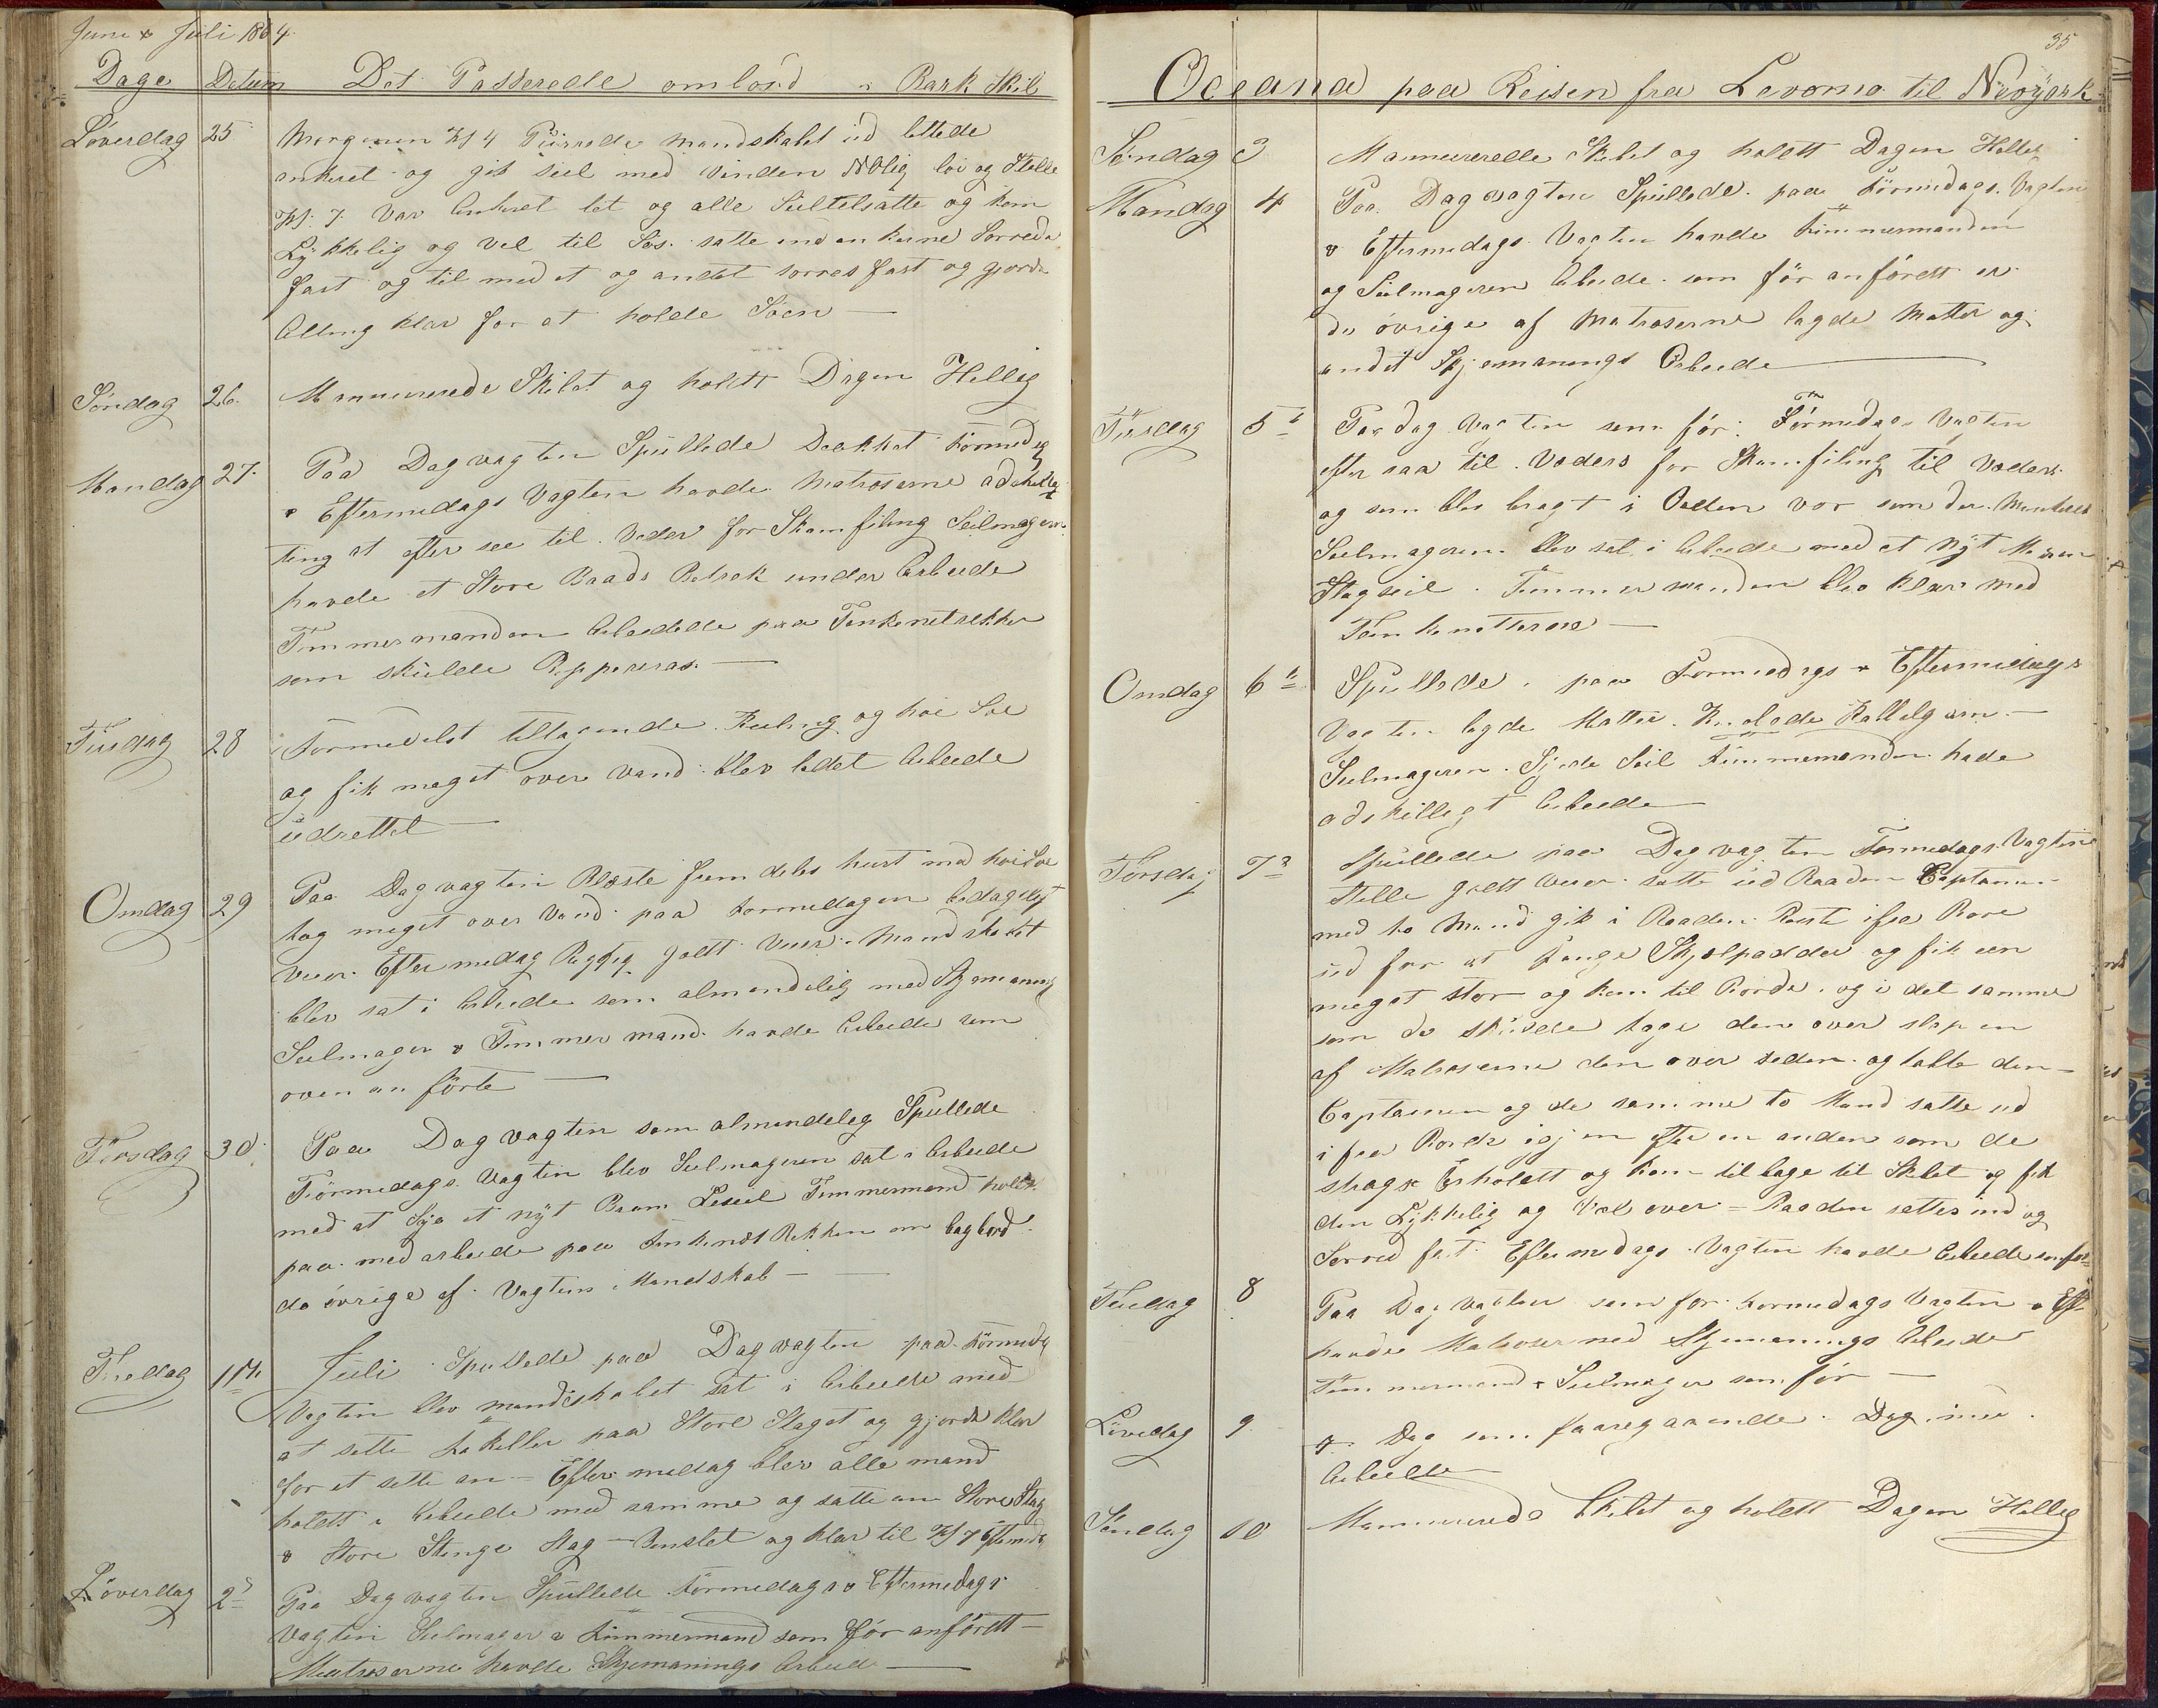 Juni & Juli 1864
Dage Datum Det Passerede ombord i Bark Skib
Löverdag 25 Morgenen Kl 4 Purrede mandskabet ud lettede
ankeret og gik seil med Vinden NOlig löi og Stille
Kl: 7 Var Ankeret let og alle Seil tilsatte og kom
Lÿkkelig og Vel til Sös. satte ind ankerne Sorrede
fast og til med et og andet sorres fast og gjorde
Alting klar for at holde Söen —
Söndag 26. Mannuverede Skibet og holdt Dagen Hellig
Mandag 27. Paa Dagvagten Spullede Dækket Formedag
& Eftermedags Vagten havde Matroserne adskellige
ting at efter see til. Voder for Skamfiling Seilmageren
havde et Store Baads Betræk under Arbeide
Tömmermanden Arbeidede paa Finkenetrekker
som skulde Repareras. —
Tirsdag 28 Formedelst tiltagende Kuling og höi Söe
og fik meget over Vand. blev lidet Arbeide
udrettet —
Onsdag 29 Paa Dagvagten Blæste fremdeles hart med höi Söe
tog meget over Vand. paa Formedagen bedageligt
Veier. Eftermedag Rigtig godt Veier. Mandskabet
blev sat i Arbeide som almendelig med Skjemaning
Seilmager & Tömmermand havde Arbeide som
oven anförte —
Torsdag 30. Paa Dagvagten som almendelig Spullede
Förmedags Vagten blev Seilmageren sat i Arbeide
med at Sye et nÿt Braam Leseil Tömmermand holdt
paa med arbeide paa Finkenet Rekken om bagbord
de övrige af Vagtens Mandskab —
Fredag 1ste Juli Spullede paa Dagvagten paa Förmedags
Vagten blev mandskabet sat i Arbeide med
at sette takeller paa Store Staget og gjorde klar
for at sette an — Eftermedag blev alle mand
holdt i Arbeide med samme og satte an Store Stag
& Store Stenge Stag — Anslet og klar til Kl 7 Eftermedag
Löverdag 2de Paa Dagvagten Spullede Förmedags & Eftermedags
Vagten Seilmager & Tömmermand som för anfördt —
Matroserne havde Skjemanings Arbeide —
35
Oceana paa Reisen fra Levorno til Nevÿork
Söndag 3 Mannuverede Skibet og holdt Dagen Hellig
Mandag 4 Paa Dagvagten Spullede. paa Förmedags Vagten
& Eftermedags Vagten havde Tömmermanden
og Seilmageren Arbeide som för anfördt er
de övrige af Matroserne lagde Matter og
andet Skjemanings Arbeide —
Tirsdag 5te Paa Dagvagten som för. Förmedags Vagten
efter saa til Voders for Skamfiling til Voders
og som blev bragt i Orden vor som der Mankered
Seilmageren blev sat i Arbeide med et nÿt Mesan
Stagseil. Tömmermanden blev klar med
Finkenetterne —
Onsdag 6te Spullede. paa Formedags & Eftermidags
Vagten lagde Matter.
Seilmageren. Sÿede Seil Tömmermanden hade
adskilligt Arbeide —
Torsdag 7de Spullede paa Dagvagten Formedags Vagten
Stille godt Veier. satte ud Baaden Captainen
med to Mand gik i Baaden
ud for at Fange Skjelpadder og fik een
meget stor og kom til Borde. og i det samme
som de skulde tage den over slap en
af Matroserne den over seden. og tabte den —
Captainen og de samme to Mand satte ud
i fra Borde igjen efter en anden som de
strags Erholdt og kom tilbage til Skibet og fik
den Lÿkkelig og Vel over = Baaden settes ind og
Sorred fast. Eftermedags Vagten havde Arbeide som för
Fredag 8 Paa Dagvagten som för. Formedags Vagten & Eft
havde Matroserne Skjemanings Arbeide
Tömmermand & Seilmager som för —
Löverdag 9. Dag som faaregaaende. Dag
Arbeide —
Söndag 10 Mannuverede Skibet og holdt Dagen Hellig